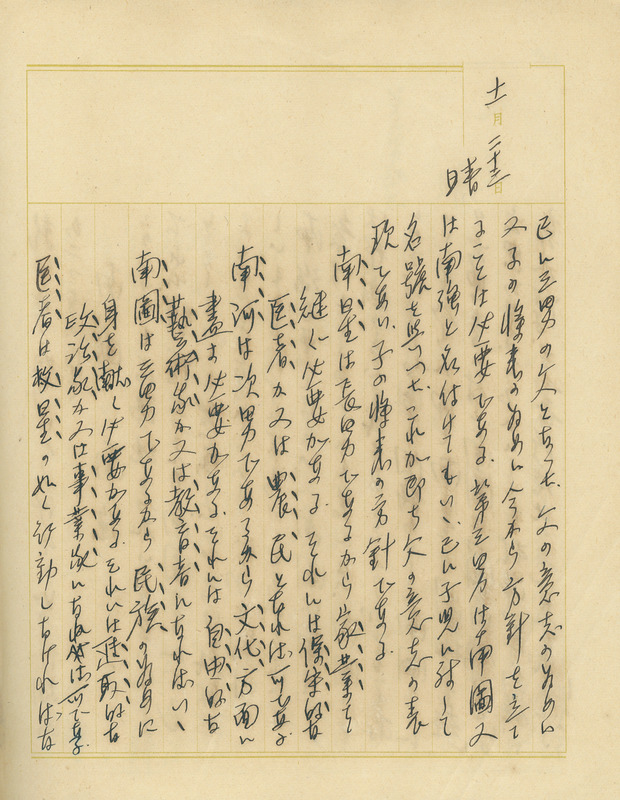 十一月二十三日
晴
已に三男の父となつた 父の意志のために
又子の将来のために今から方針を立て
ることは必要である. 第三男は南圖又
は南強と名付けてもいゝ, 已に子児に対して
名號を與へた これが即ち父の意志の表
現であり, 子の将来の方針である
南星は長男であるから家業を
継ぐ必要がある それには保守的な
医者か又は農民となれば可である
南河は次男であるから文化方面に
盡す必要がある それには自由的な
藝術家か又は教育者になればいゝ
南圖は三男であるから民族の為めに
身を献ぐ必要がある それには進取的な
政治家か又は事業家になれば可である.
医者は救星の如く行動しなければな